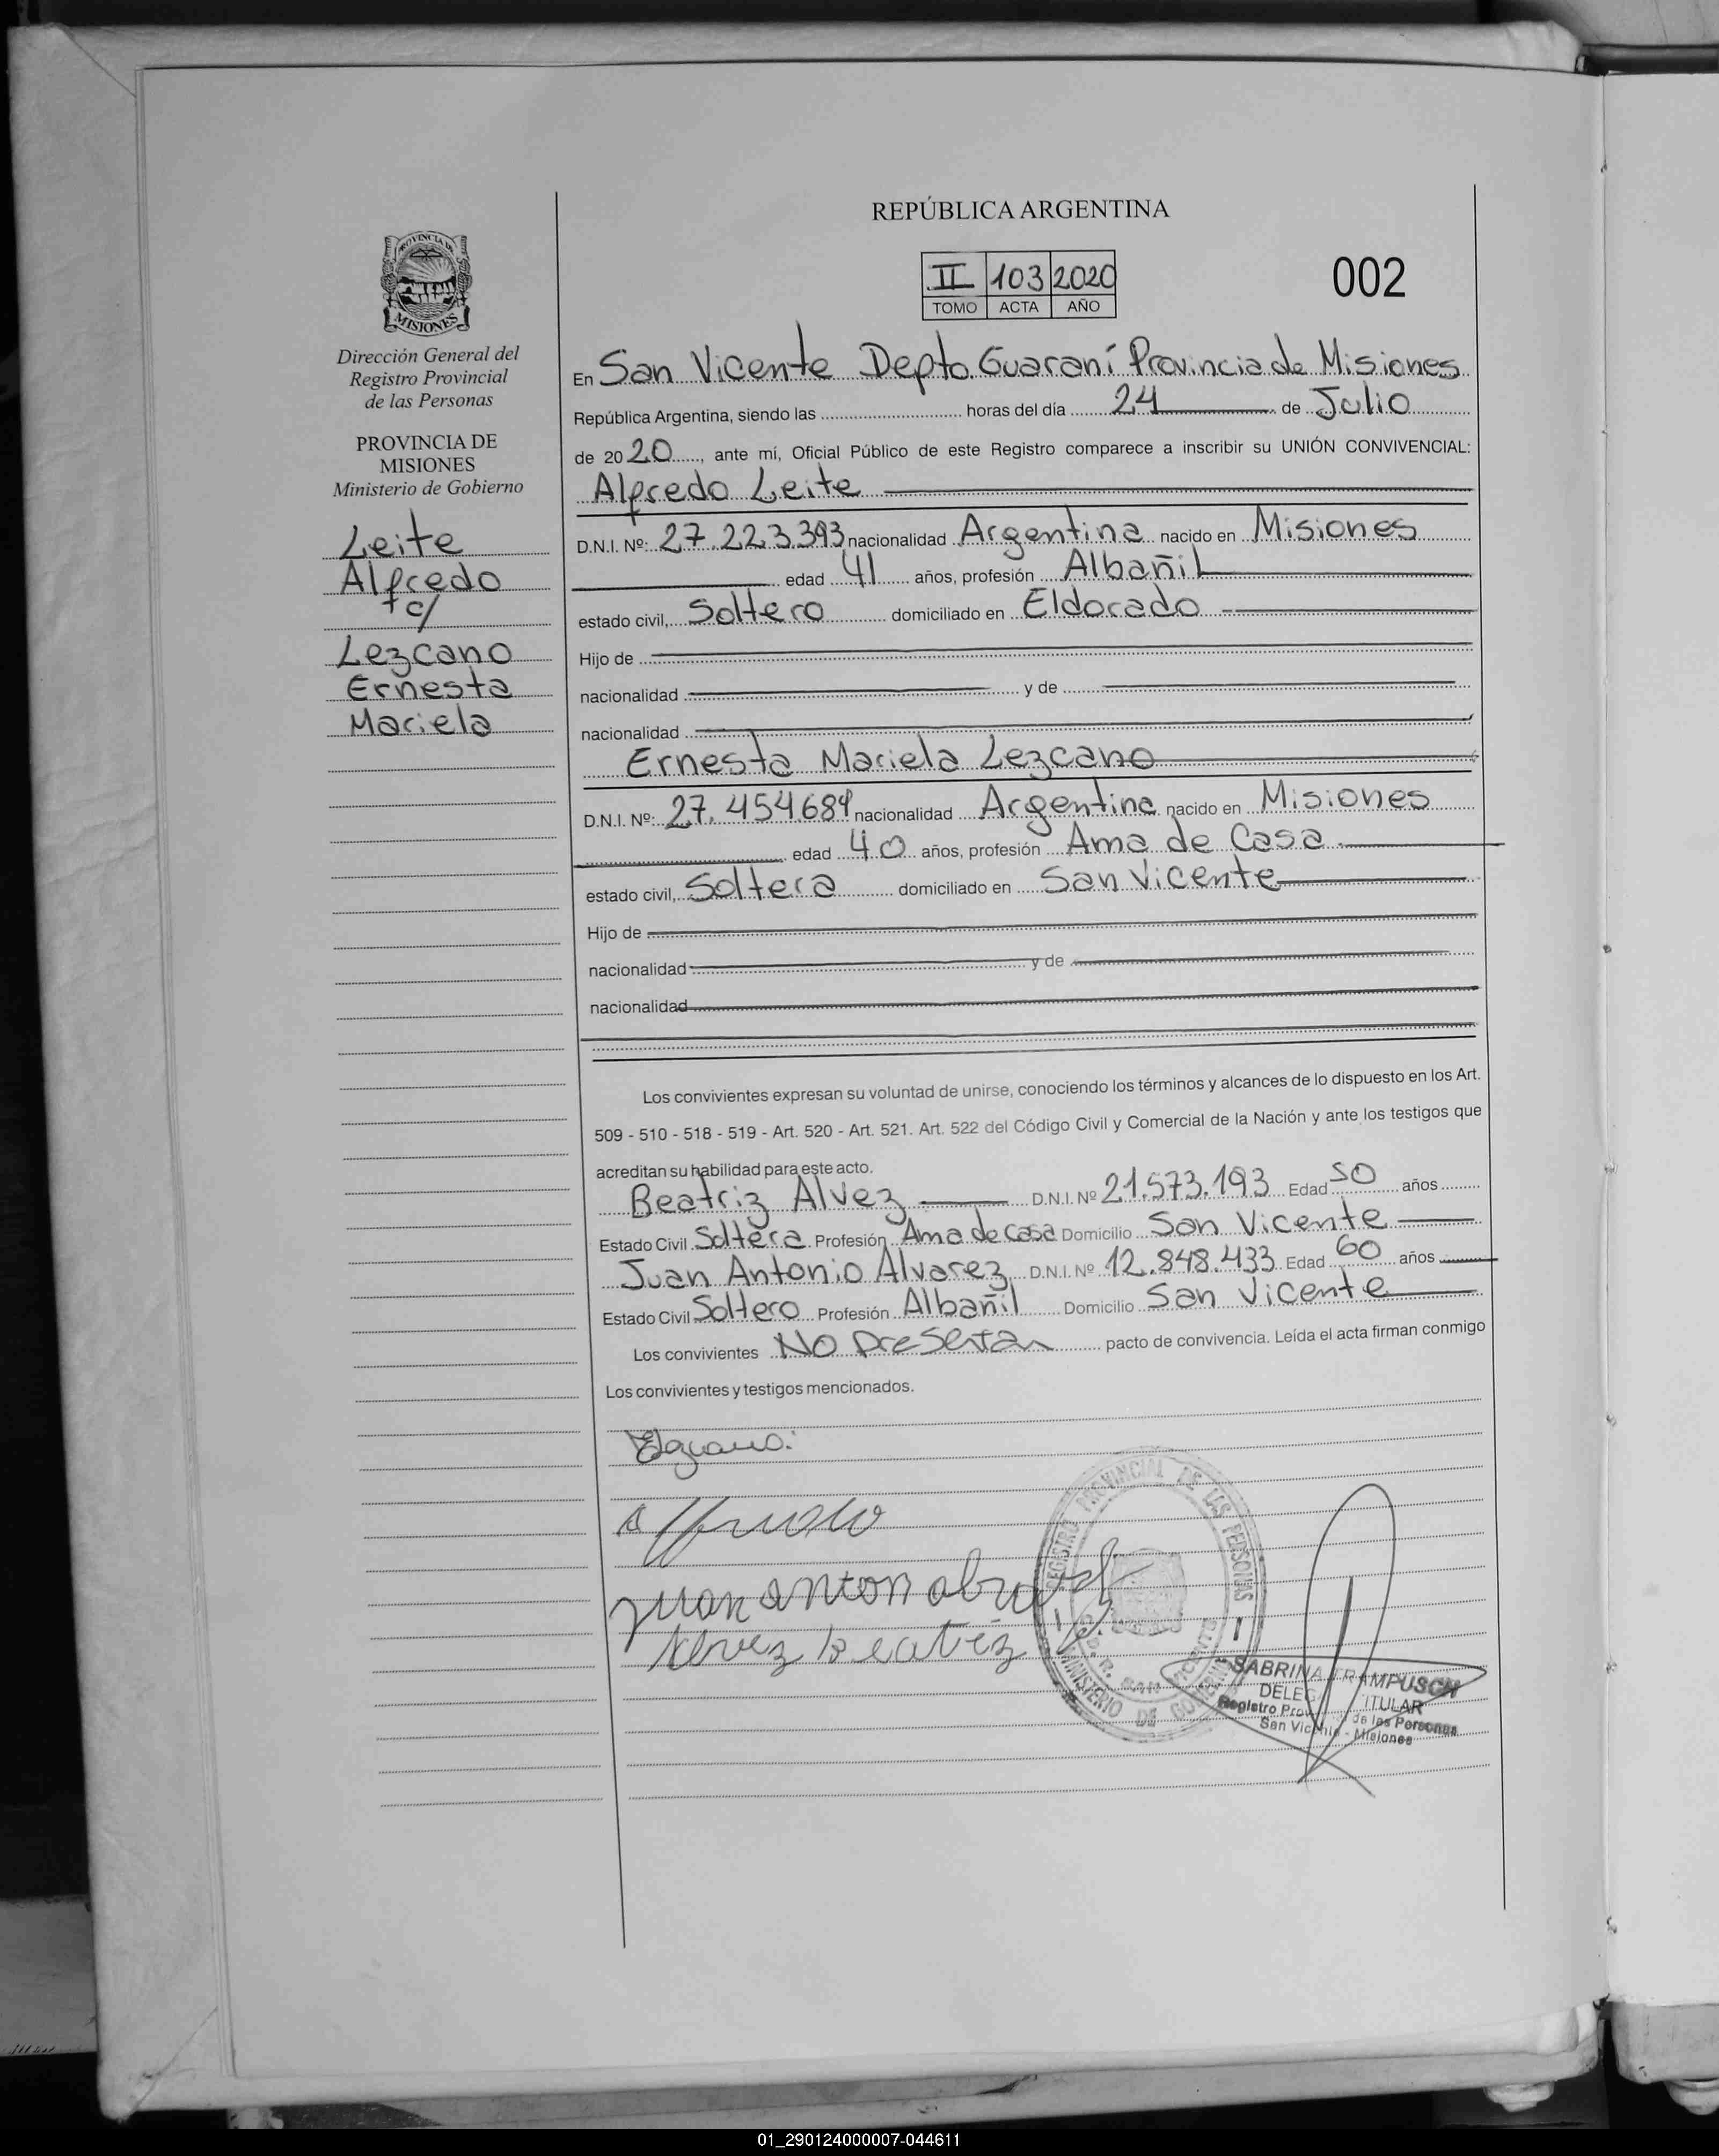 REPÚBLICA ARGENTINA
II 103 2020
TOMO ACTA AÑO
002
PROVINCIA DE
MISIONES
Dirección General del
Registro Provincial
de las Personas
PROVINCIA DE
MISIONES
Ministerio de Gobierno
Leite
Alfredo
c/
Lezcano
Ernesta
Mariela
En San Vicente Depto. Guaraní Provincia de Misiones
República Argentina, siendo las horas del día 24 de Julio
de 2020, ante mí, Oficial Público de este Registro comparece a inscribir su UNIÓN CONVIVENCIAL:
Alfredo Leite
D.N.I. Nº: 27.223.393 nacionalidad Argentina nacido en Misiones
edad 41 años, profesión Albañil
estado civil, Soltero domiciliado en Eldorado
Hijo de
nacionalidad y de
nacionalidad
Ernesta Mariela Lezcano
D.N.I. Nº: 27.454684 nacionalidad Argentina nacido en Misiones
edad 40 años, profesión Ama de Casa
estado civil, Soltera domiciliado en San Vicente
Hijo de
nacionalidad y de
nacionalidad
Los convivientes expresan su voluntad de unirse, conociendo los términos y alcances de lo dispuesto en los Art.
509 - 510 - 518 - 519 - Art. 520 - Art. 521. Art. 522 del Código Civil y Comercial de la Nación y ante los testigos que
acreditan su habilidad para este acto.
Beatriz Alvez D.N.I. Nº 21.573.193 Edad 50 años
Estado Civil Soltera Profesión Ama de Casa Domicilio San Vicente
Juan Antonio Alvarez D.N.I. Nº 12.848.433 Edad 60 años
Estado Civil Soltero Profesión Albañil Domicilio San Vicente
Los convivientes No presentan pacto de convivencia. Leída el acta firman conmigo
Los convivientes y testigos mencionados.
Alvez Beatriz
REGISTRO PROVINCIAL DE LAS PERSONAS
MINISTERIO DE GOBIERNO
SABRINA TRAMPUSCH
Registro Prov de las Personas
San Vicente - Misiones
01_290124000007-044611